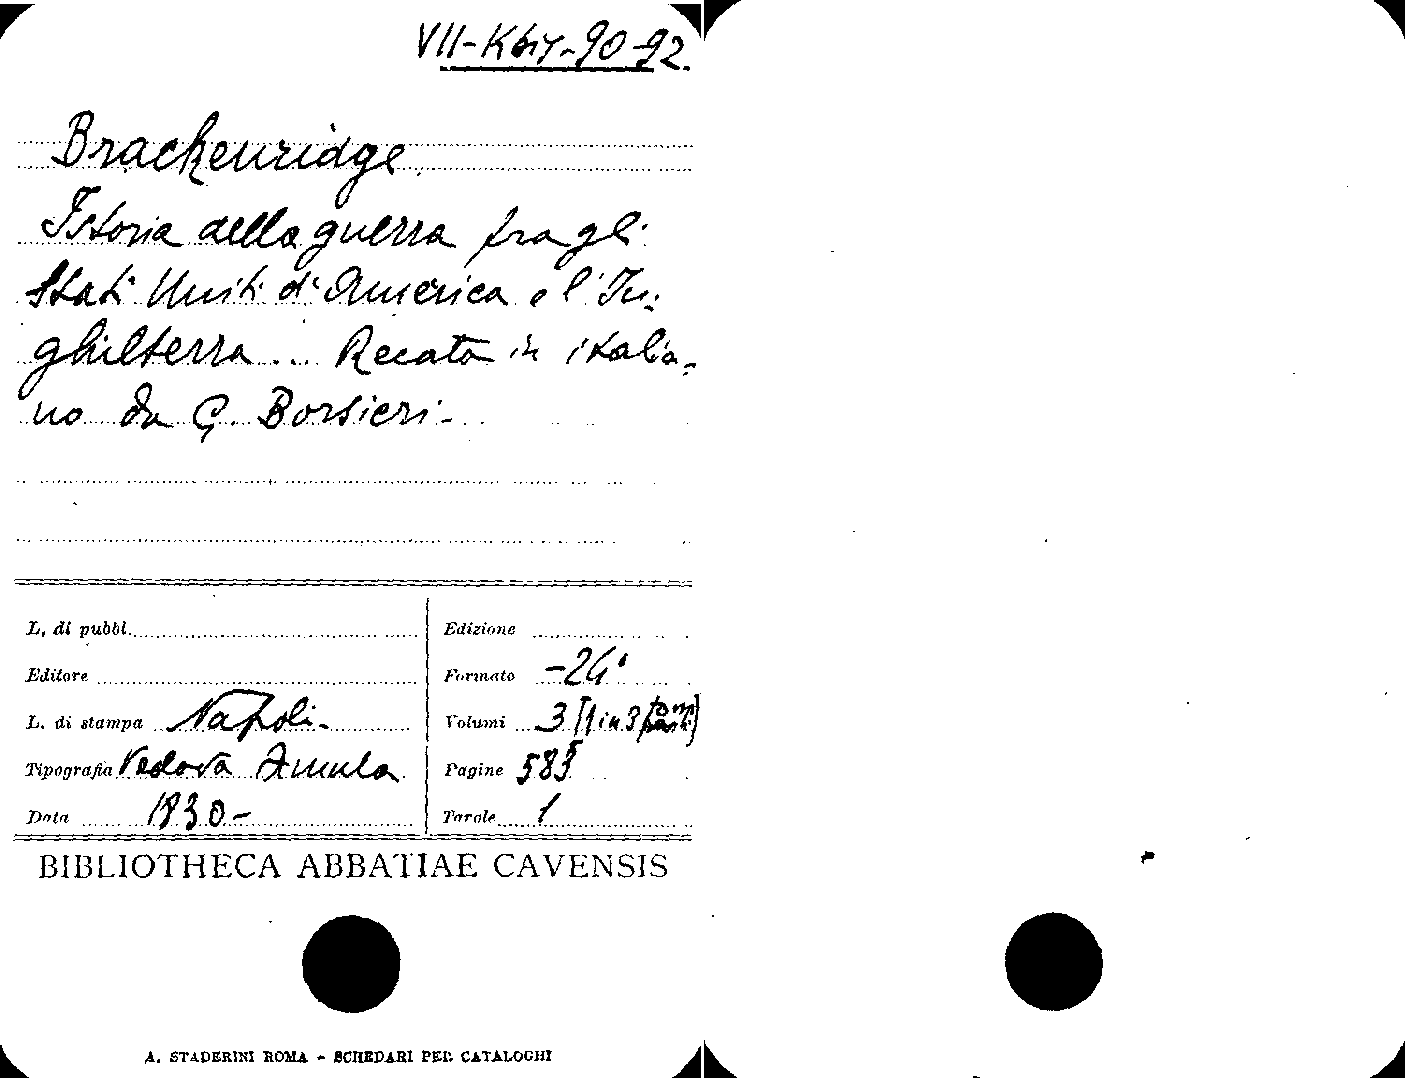 VII-Kbis-90-92.
Brackenridge
Istoria della guerra fra gli
Stati Uniti d'America e l'In-
ghilterra... Recata in italia-
no da G. Borsieri-
L. di pubbl.
Edizione
Editore
Formato -24°
L. di stampa Napoli-
Volumi 3 [1 in 3 tomi]
Tipografia Vedova Amula
Pagine 585
Data 1830-
Tavole 1
BIBLIOTHECA ABBATIAE CAVENSIS
A. STADERINI ROMA - SCHEDARI PER CATALOGHI